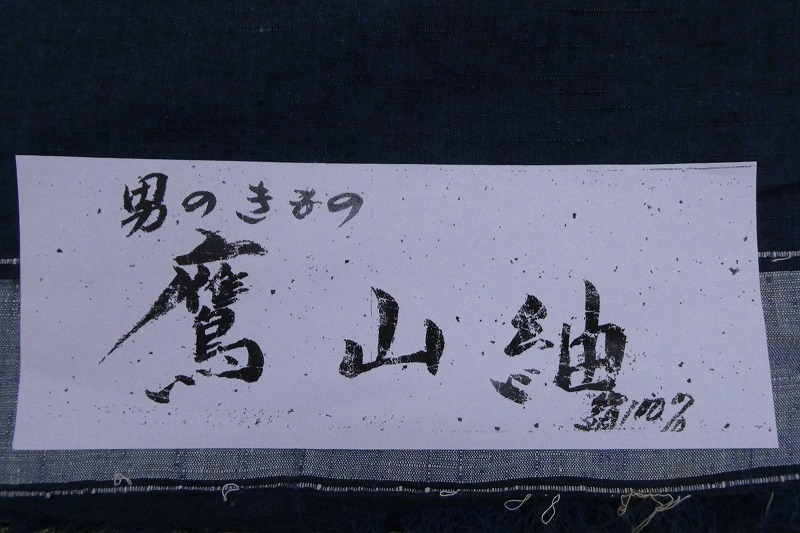 男のきもの
鷹山紬
100%